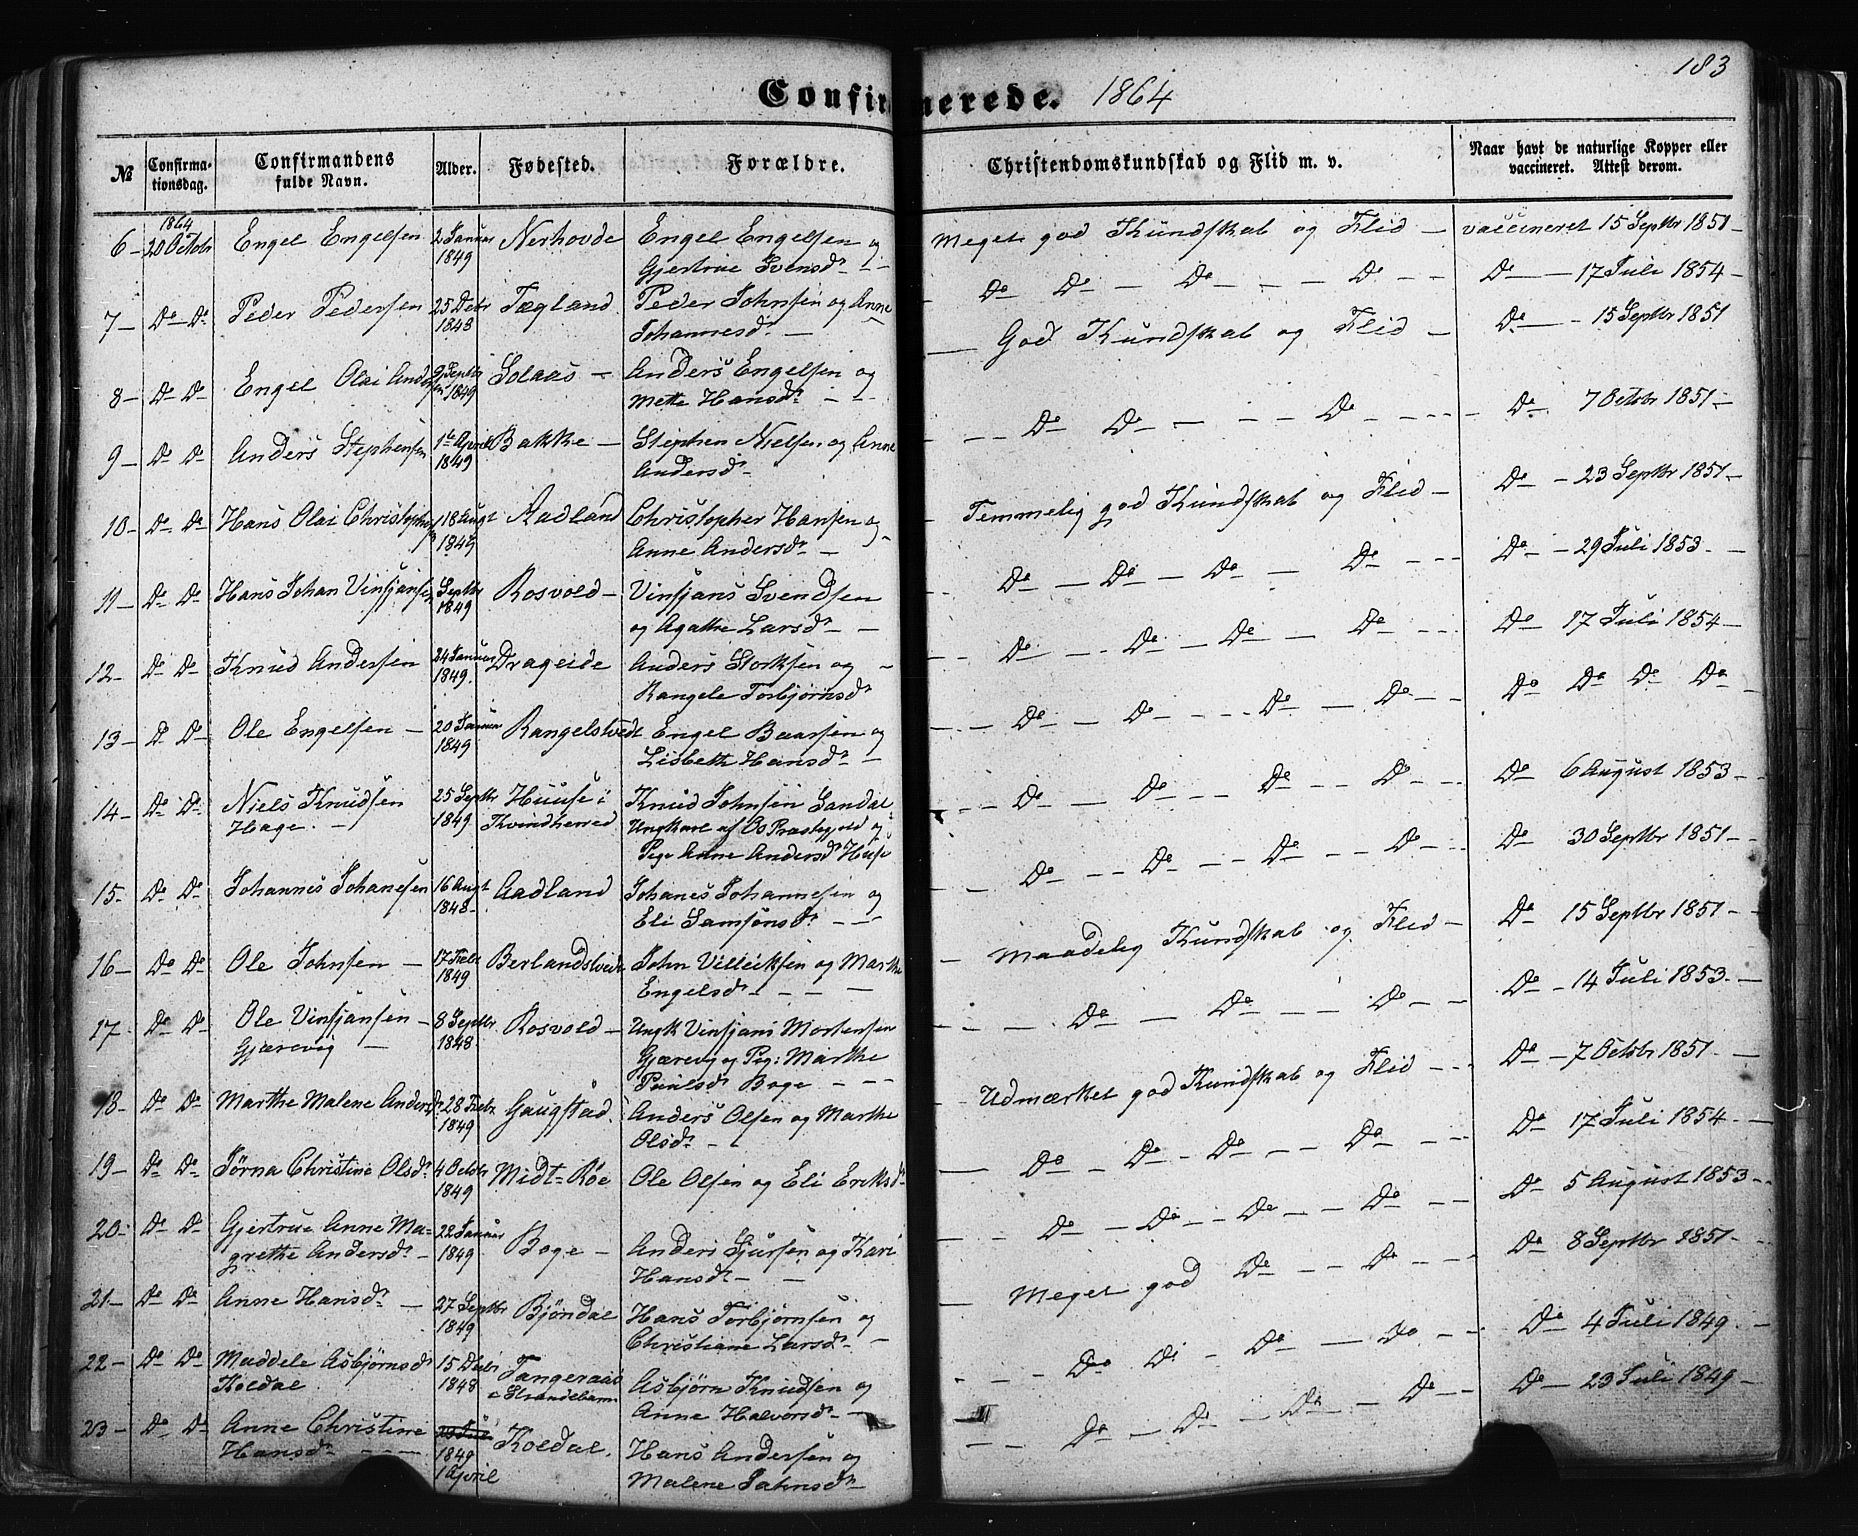 183
Confirmerede. 1864
№
Confirma-
tionsdag.
Confirmandens
fulde Navn.
Alder.
Fødested.
Forældre.
Christendomskundskab og Flid m. v.
Naar havt de naturlige Kopper eller
vaccineret. Attest derom.
1864
6 – 20 Octobr Engel Engelsen 2 Januar 1849 Nerhovde Engel Engelsen og Gjertrue Svensdr – – Meget god Kundskab og Flid – vaccineret 15 Septbr 1851 –
7 – Do Do Peder Pedersen 25 Decbr 1848 Tægland Peder Johnsen og Anne Johannesdr – Do Do – Do – – Do – – Do – – 17 Juli 1854 –
8 – Do Do Engel Olai Andersen 9 Septbr 1849 Solaas – Anders Engelsen og Mette Hansdr – – God Kundskab og Flid – Do – – 15 Septbr 1851
9 – Do Do Anders Stephensen 1te April 1849 Bakke – Stephen Nielsen og Anne Andersdr – – – Do Do – – – Do – – – – Do 7 Octobr 1851 –
10 – Do Do Hans Olai Christophersen 18 Augt 1849 Aadland Christopher Hansen og Anne Andersdr – Temmelig god Kundskab og Flid – Do – 23 Septbr 1851 –
11 – Do Do Hans Johan Vinsjansen Septbr 1849 Rosvold – Vinsjans Svendsen og Agathe Larsdr – – Do – Do – Do – Do – – – Do – 29 Juli 1853 –
12 – Do Do Knud Andersen 24 Januar 1849. Drageide Anders Storksen og – Rangele Torbjørnsdr – – Do – Do – Do – Do – – – Do – 17 Juli 1854 –
13 – Do Do Ole Engelsen – 20 Januar 1849 Rangelstvedt Engel Baarsen og Lisbeth Hansdr – – – – Do – Do – – – Do – Do – – Do Do Do Do –
14 – Do Do Niels Knudsen Hage. – 25 Septbr 1849 Huuse i Kvindherred Knud Johnsen Sandal Ungkarl af Os Præstegjeld og Pige Anne Andersdr Huse – – Do – – Do – – Do – Do – – Do – 6 August 1853 –
15 – Do Do Johannes Johanesen 16 Augt 1848 – Aadland Johanes Johannesen og Eli Samsonsdr – – – – Do – – Do – – Do – – Do – – Do – 30 Septbr 1851 –
16 – Do Do Ole Johnsen – 17 Febr 1849 Berlandstvedt John Villeiksen og Marthe Engelsdr – – – – Maadelig Kundskab og Flid – Do – 15 Septbr 1851 –
17 – Do Do Ole Vinsjansen – Gjærevig – 8 Septbr 1848. Rosvold – Ungk Vinsjans Mortensen Gjærevig og Pig: Marthe Paulsdr Boge – – – – – – Do – – Do – – – Do – – Do – 14 Juli 1853 –
18 – Do Do Marthe Malene Andersdr 28 Febr 1849 Gaugstad. Anders Olsen og Marthe Olsdr – Udmærket god Kundskab og Flid – – – Do – 7 Octobr 1851 –
19 – Do Do Jørna Christine Olsdr 4 Octobr 1849 Midt-Røe Ole Olsen og Eli Eriksdr – Do – Do – Do – – Do – – Do – 17 Juli 1854 –
20 – Do Do Gjertrue Anne Ma- grethe Andersdr – 22 Januar 1849 Boge – Anders Sjursen og Kari Hansdr – – – – – Do – Do – – Do – – Do – – Do – 5 August 1853 –
21 – Do Do Anne Hansdr – 27 Septbr 1849 Bjøndal Hans Torbjørnsen og Christiane Larsdr – – – Meget god Do – – – Do – – Do – 8 Septbr 1851 –
22 – Do Do Maddele Asbjørnsdr Koldal 15 Decbr 1848 Tangeraas i Strandebarm Asbjørn Knudsen og Anne Halvorsdr – – – – Do Do – Do – Do – – Do – 4 Juli 1849 –
23 – Do Do Anne Christine Hansdr – – – 1849 1 April Koldal. Hans Andersen og Malene Johnsdr – – – – Do – Do – Do – Do – – Do – 23 Juli 1849 –